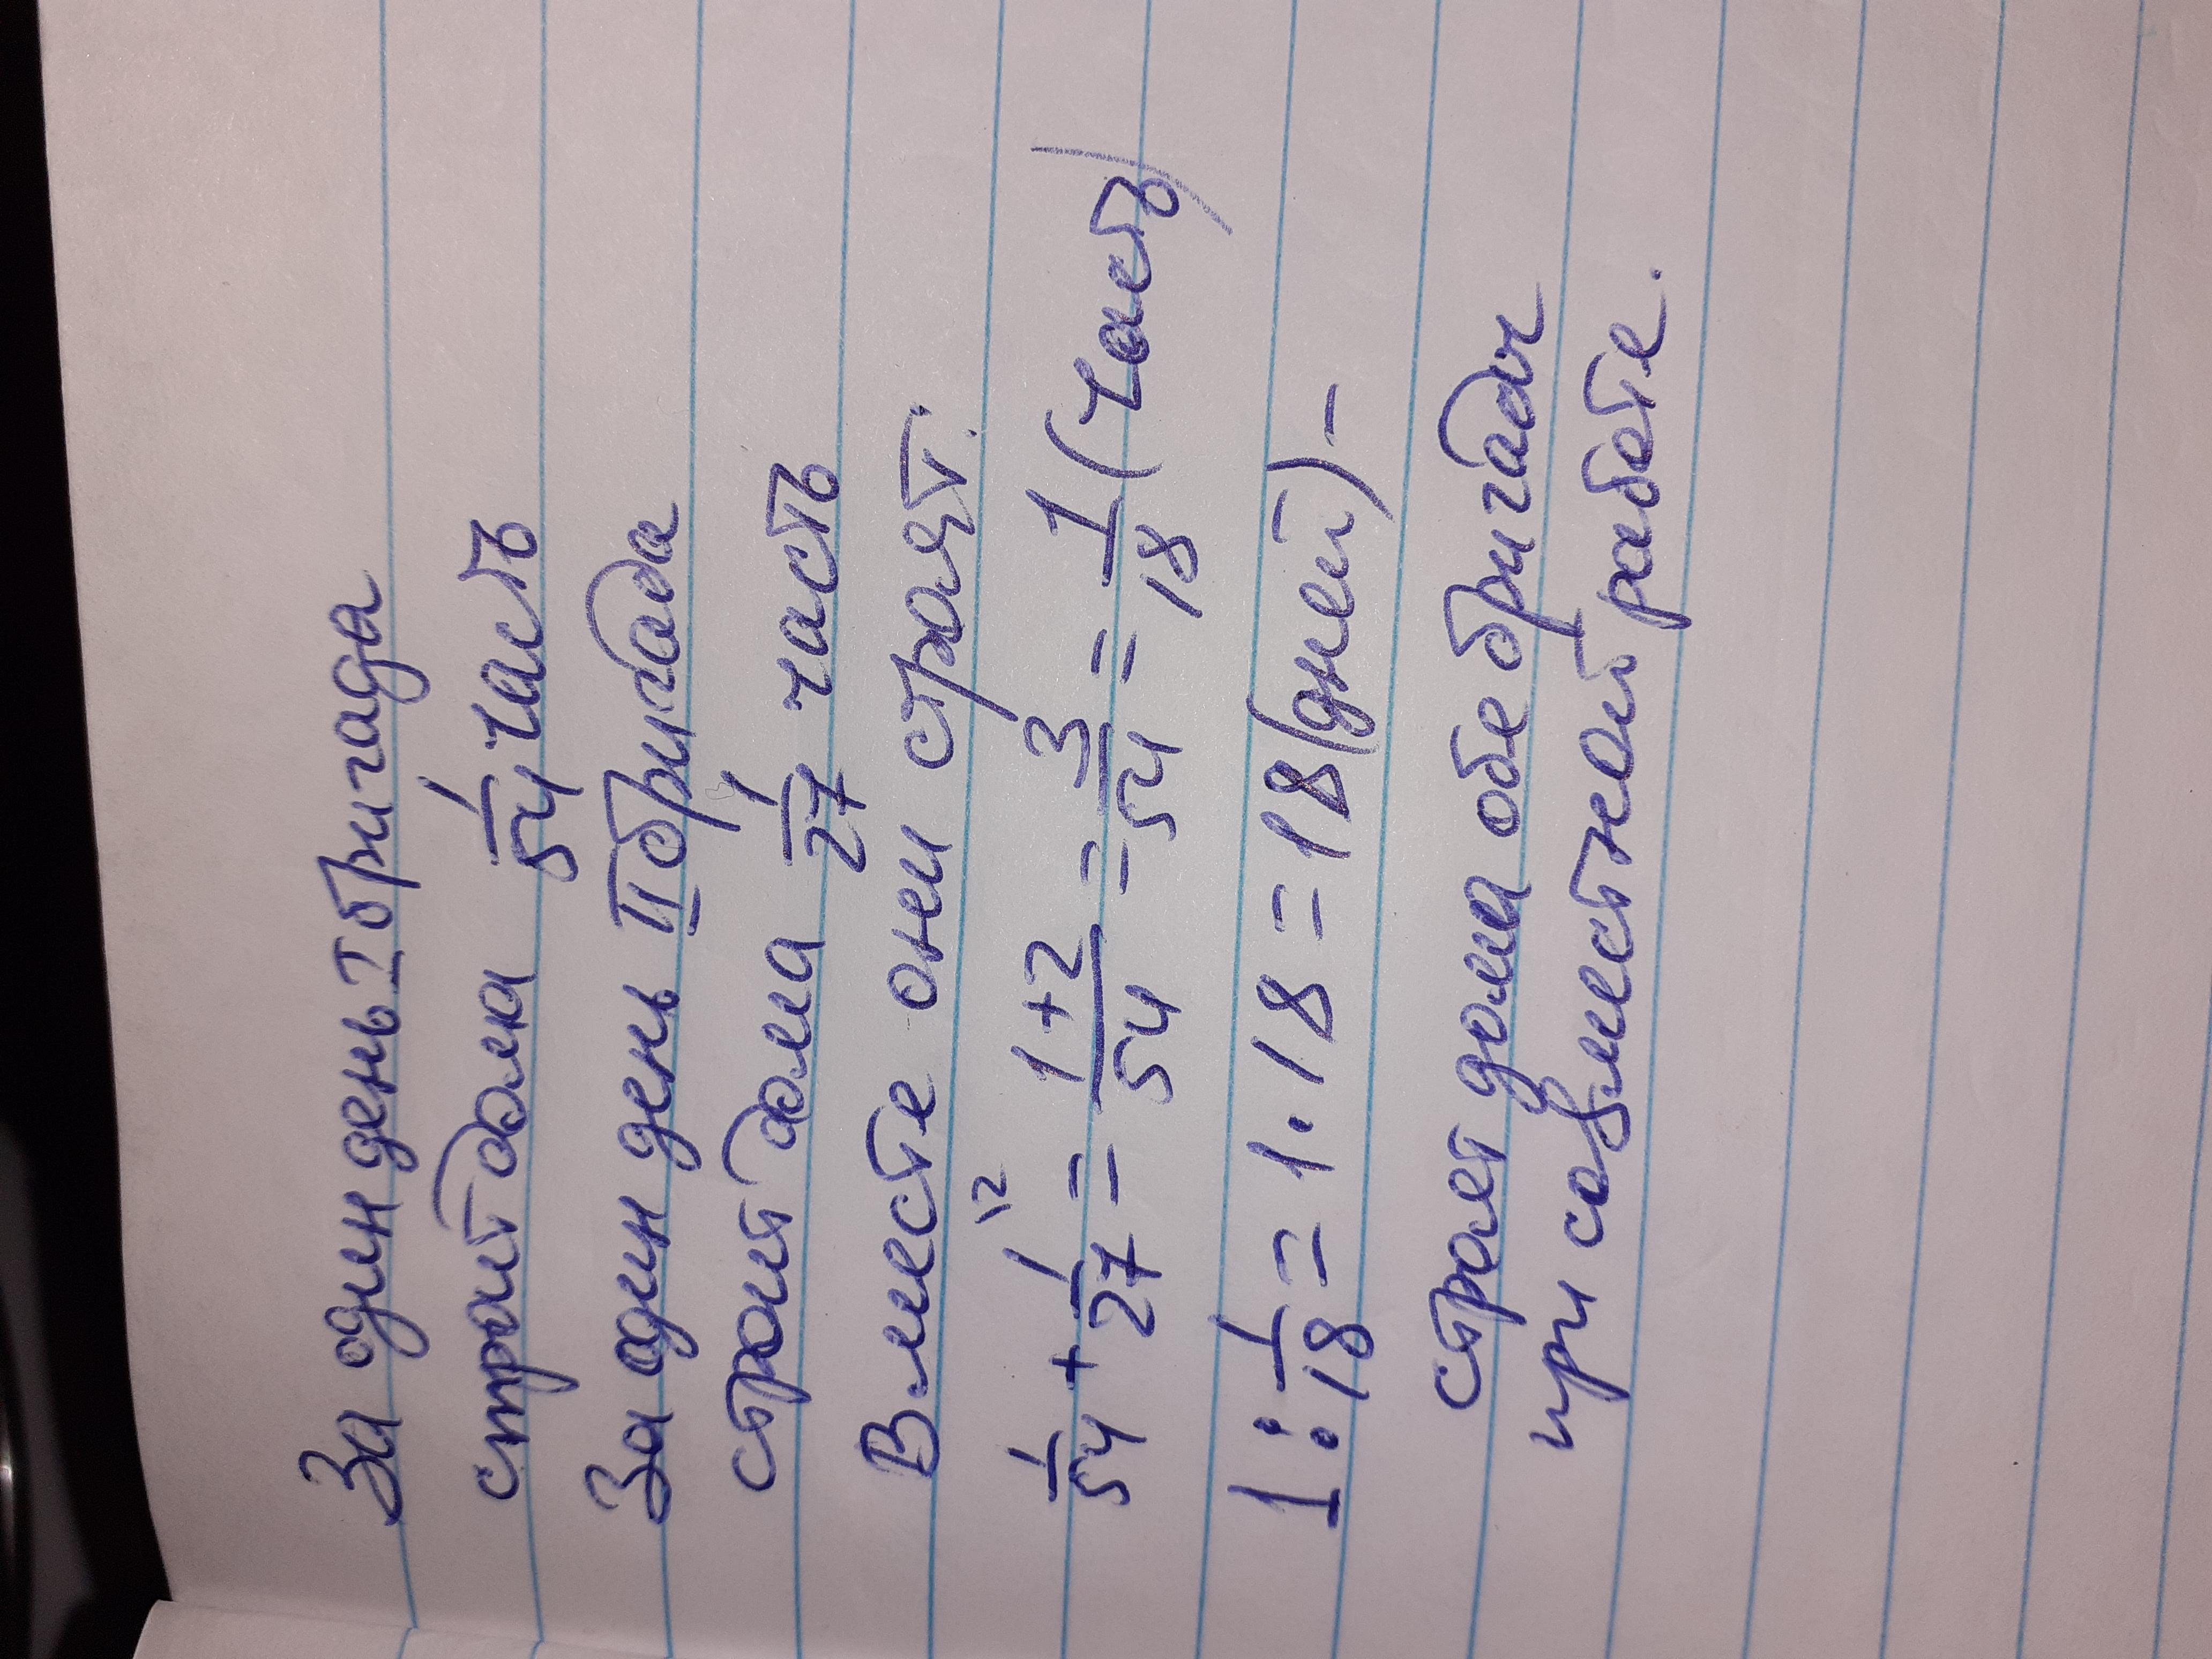 За один день I бригада
строит дома 1/54 часть
За один день II бригада
строит дома 1/27 часть
Вместе они строят:
1/54 + 1/27 \2 = 1+2/54 = 3/54 = 1/18 (часть)
1 : 1/18 = 1 · 18 = 18 (дней) –
строят дома обе бригады
при совместной работе.